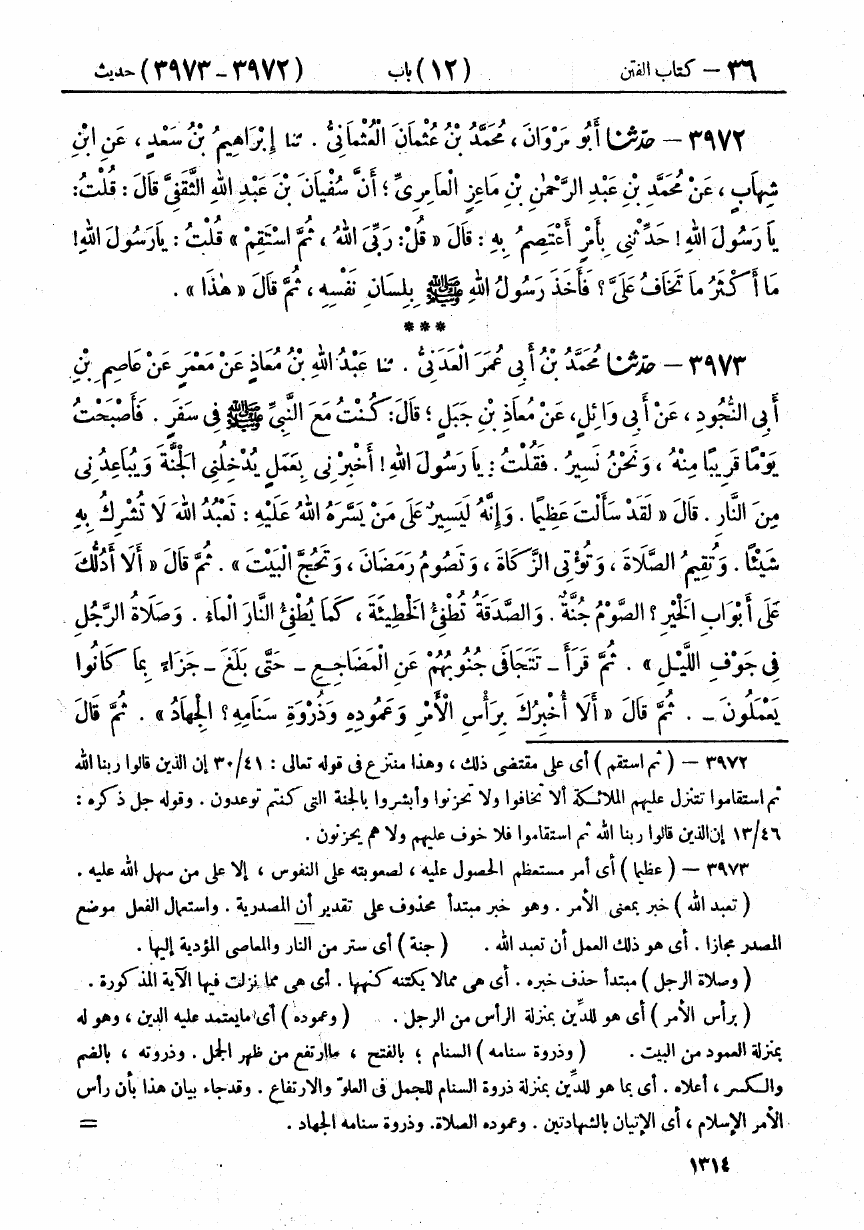 ٣٦ – كتاب الفتن (١٢) باب (٣٩٧٢ – ٣٩٧٣) حديث
٣٩٧٢ – حدّثنا أَبُو مَرْوَانَ، مُحَمَّدُ بْنُ عُثْمَانَ الْعُثْمَانِيُّ . ثنا إِبْرَاهِيمُ بْنُ سَعْدٍ، عَنِ ابْنِ
شِهَابٍ، عَنْ مُحَمَّدِ بْنِ عَبْدِ الرَّحْمٰنِ بْنِ مَاعِزٍ الْعَامِرِيِّ؛ أَنَّ سُفْيَانَ بْنَ عَبْدِ اللهِ الثَّقَفِيَّ قَالَ: قُلْتُ:
يَا رَسُولَ اللهِ! حَدِّثْنِى بِأَمْرٍ أَعْتَصِمُ بِهِ: قَالَ « قُلْ: رَبِّىَ اللهُ، ثُمَّ اسْتَقِمْ » قُلْتُ: يَارَسُولَ اللهِ!
مَا أَكْثَرُ مَا تَخَافُ عَلَىَّ؟ فَأَخَذَ رَسُولُ اللهِ ﷺ بِلِسَانِ نَفْسِهِ، ثُمَّ قَالَ « هٰذَا » .
***
٣٩٧٣ – حدّثنا مُحَمَّدُ بْنُ أَبِى عُمَرَ الْعَدَنِىُّ . ثنا عَبْدُ اللهِ بْنُ مُعَاذٍ عَنْ مَعْمَرٍ عَنْ عَاصِمِ بْنِ
أَبِى النُّجُودِ، عَنْ أَبِى وَائِلٍ، عَنْ مُعَاذِ بْنِ جَبَلٍ؛ قَالَ: كُنْتُ مَعَ النَّبِىِّ ﷺ فِى سَفَرٍ . فَأَصْبَحْتُ
يَوْمًا قَرِيبًا مِنْهُ، وَنَحْنُ نَسِيرُ . فَقُلْتُ: يَا رَسُولَ اللهِ! أَخْبِرْنِى بِعَمَلٍ يُدْخِلُنِى الْجَنَّةَ وَيُبَاعِدُنِى
مِنَ النَّارِ . قَالَ « لَقَدْ سَأَلْتَ عَظِيمًا . وَإِنَّهُ لَيَسِيرٌ عَلَى مَنْ يَسَّرَهُ اللهُ عَلَيْهِ: تَعْبُدُ اللهَ لَا تُشْرِكُ بِهِ
شَيْئًا . وَتُقِيمُ الصَّلَاةَ، وَتُؤْتِى الزَّكَاةَ، وَتَصُومُ رَمَضَانَ، وَتَحُجُّ الْبَيْتَ » . ثُمَّ قَالَ « أَلَا أَدُلُّكَ
عَلَى أَبْوَابِ الْخَيْرِ؟ الصَّوْمُ جُنَّةٌ . وَالصَّدَقَةُ تُطْفِئُ الْخَطِيئَةَ، كَمَا يُطْفِئُ النَّارَ الْمَاءُ . وَصَلَاةُ الرَّجُلِ
فِى جَوْفِ اللَّيْلِ » . ثُمَّ قَرَأَ – تَتَجَافَى جُنُوبُهُمْ عَنِ الْمَضَاجِعِ – حَتَّى بَلَغَ – جَزَاءً بِمَا كَانُوا
يَعْمَلُونَ – . ثُمَّ قَالَ « أَلَا أُخْبِرُكَ بِرَأْسِ الْأَمْرِ وَعَمُودِهِ وَذُرْوَةِ سَنَامِهِ؟ الْجِهَادُ » . ثُمَّ قَالَ
٣٩٧٢ – (ثم استقم) أى على مقتضى ذلك، وهذا منتزع فى قوله تعالى: ٣٠/٤١ إن الذين قالوا ربنا الله
ثم استقاموا تتنزل عليهم الملائكة ألا تخافوا ولا تحزنوا وأبشروا بالجنة التى كنتم توعدون . وقوله جل ذكره:
١٣/٤٦ إن الذين قالوا ربنا الله ثم استقاموا فلا خوف عليهم ولا هم يحزنون .
٣٩٧٣ – (عظيما) أى أمر مستعظم الحصول عليه، لصعوبته على النفوس، إلا على من سهل الله عليه .
(تعبد الله) خبر بمعنى الأمر . وهو خبر مبتدأ محذوف على تقدير أن المصدرية . واستعمال الفعل موضع
المصدر مجازا . أى هو ذلك العمل أن تعبد الله . (جنة) أى ستر من النار والمعاصى المؤدية إليها .
(وصلاة الرجل) مبتدأ حذف خبره . أى هى ممالا يكتنه كنهها . أى هى مما نزلت فيها الآية المذكورة .
(برأس الأمر) أى هو للدِّين بمنزلة الرأس من الرجل . (وعموده) أى مايعتمد عليه الدين، وهو له
بمنزلة العمود من البيت . (وذروة سنامه) السنام؛ بالفتح، ماارتفع من ظهر الجمل . وذروته، بالضم
والكسر، أعلاه . أى بما هو للدِّين بمنزلة ذروة السنام للجمل فى العلوّ والارتفاع . وقدجاء بيان هذا بأن رأس
الأمر الإسلام، أى الإتيان بالشهادتين . وعموده الصلاة. وذروة سنامه الجهاد . =
١٣١٤